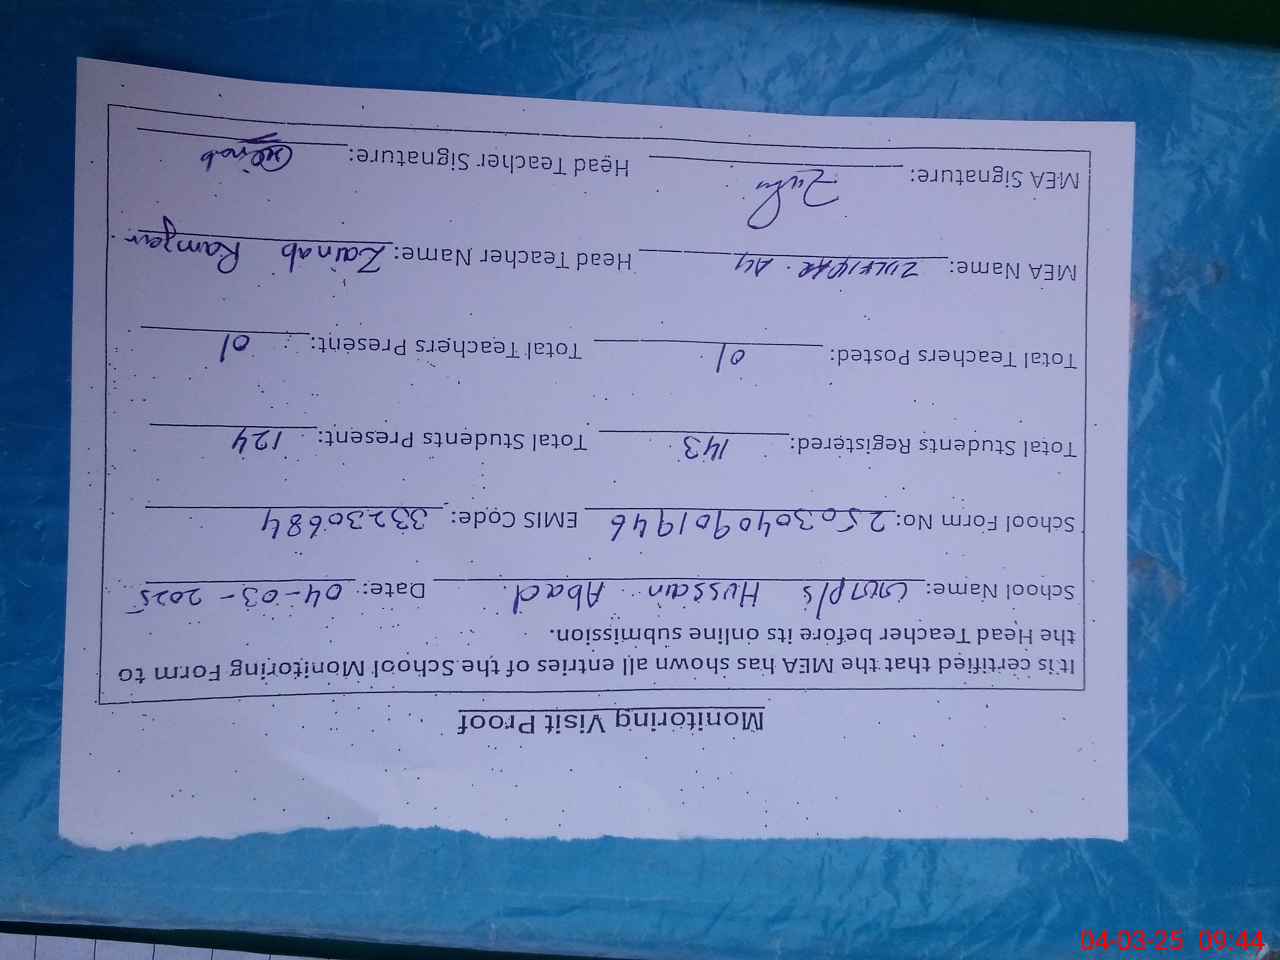 Monitoring Visit Proof
It is certified that the MEA has shown all entries of the School Monitoring Form to
the Head Teacher before its online submission.
School Name: GMP/s Hussain Abad Date: 04-03-2025
School Form No: 2503040901946 EMIS Code: 33230684
Total Students Registered: 143 Total Students Present: 124
Total Teachers Posted: 01 Total Teachers Present: 01
MEA Name: ZULFIQAR Ali Head Teacher Name: Zainab Ramzan
MEA Signature: Head Teacher Signature: Zainab
04-03-25 09:44